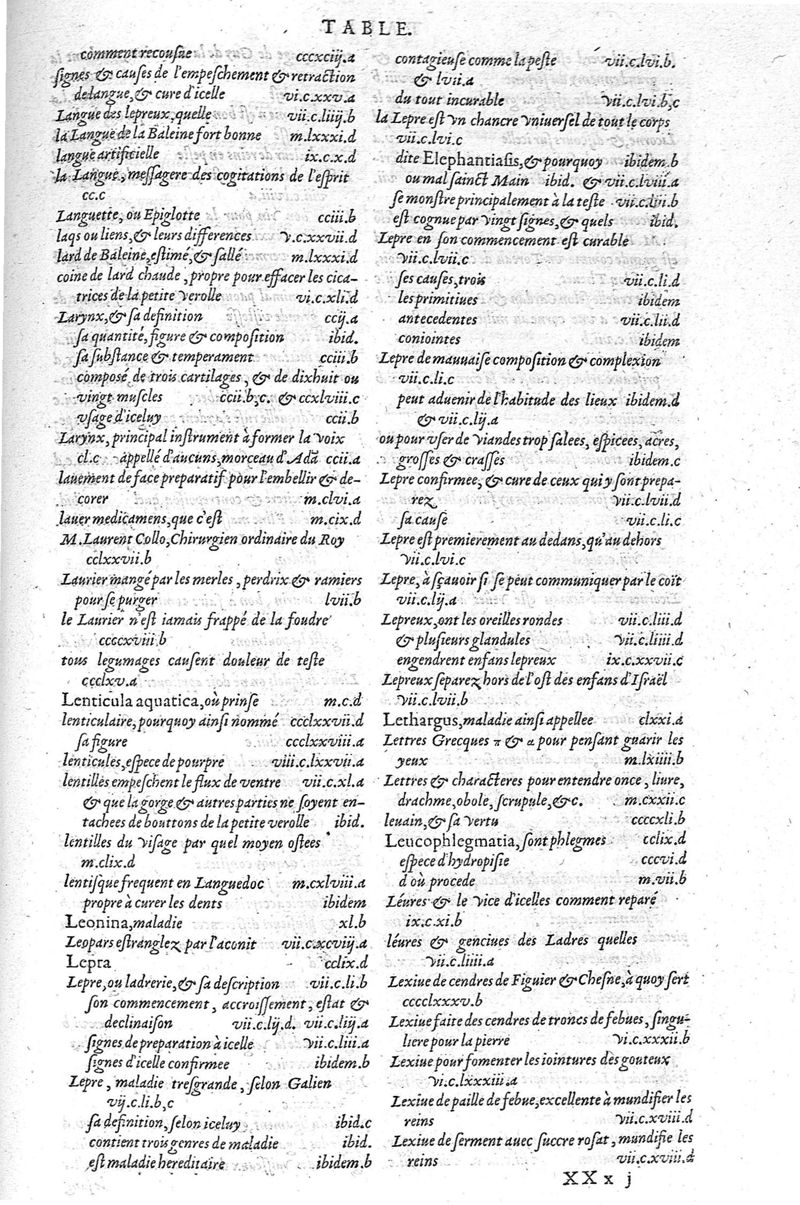 TABLE.
comment recousue cccxciij.a
signes & causes de l'empeschement & retraction
de langue, & cure d'icelle vi.c.xxv.a
Langue des lepreux, quelle vii.c.liiij.b
la Langue de la Baleine fort bonne m.lxxxi.d
langue artificielle ix.c.x.d
la Langue, messagere des cogitations de l'esprit
cc.c
Languette, ou Epiglotte cciii.b
laqs ou liens, & leurs differences v.c.xxvii.d
lard de Baleine, estimé, & sallé m.lxxxi.d
coine de lard chaude, propre pour effacer les cica-
trices de la petite verolle vi.c.xli.d
Larynx, & sa definition ccij.a
sa quantité, figure & composition ibid.
sa substance & temperament cciii.b
composé de trois cartilages, & de dixhuit ou
vingt muscles ccii.b,c. & ccxlviii.c
vsage d'iceluy ccii.b
Larynx, principal instrument à former la voix
cl.c appellé d'aucuns, morceau d'Adā ccii.a
lauement de face preparatif pour l'embellir & de-
corer m.clvi.a
lauer medicamens, que c'est m.cix.d
M. Laurent Collo, Chirurgien ordinaire du Roy
cclxxvii.b
Laurier mangé par les merles, perdrix & ramiers
pour se purger lvii.b
le Laurier n'est iamais frappé de la foudre
ccccxviii.b
tous legumages causent douleur de teste
ccclxv.a
Lenticula aquatica, où prinse m.c.d
lenticulaire, pourquoy ainsi nommé ccclxxvii.d
sa figure ccclxxviii.a
lenticules, espece de pourpre viii.c.lxxvii.a
lentilles empeschent le flux de ventre vii.c.xl.a
& que la gorge & autres parties ne soyent en-
tachees de bouttons de la petite verolle ibid.
lentilles du visage par quel moyen ostees
m.clix.d
lentisque frequent en Languedoc m.cxlviii.a
propre à curer les dents ibidem
Leonina, maladie xl.b
Leopars estranglez par l'aconit vii.c.xcviij.a
Lepra cclix.d
Lepre, ou ladrerie, & sa description vii.c.li.b
son commencement, accroissement, estat &
declinaison vii.c.lij.d. vii.c.liij.a
signes de preparation à icelle vii.c.liii.a
signes d'icelle confirmee ibidem.b
Lepre, maladie tresgrande, selon Galien
vij.c.li.b,c
sa definition, selon iceluy ibid.c
contient trois genres de maladie ibid.
est maladie hereditaire ibidem.b
contagieuse comme la peste vii.c.lvi.b.
& lvii.a
du tout incurable vii.c.lvi.b,c
la Lepre est vn chancre vniuersel de tout le corps
vii.c.lvi.c
dite Elephantiasis, & pourquoy ibidem.b
ou mal sainct Main ibid. & vii.c.lviii.a
se monstre principalement à la teste vii.c.liii.b
est cognue par vingt signes, & quels ibid.
Lepre en son commencement est curable
vii.c.lvii.c
ses causes, trois vii.c.li.d
les primitiues ibidem
antecedentes vii.c.lii.d
coniointes ibidem
Lepre de mauuaise composition & complexion
vii.c.li.c
peut aduenir de l'habitude des lieux ibidem.d
& vii.c.lij.a
ou pour vser de viandes trop salees, espicees, acres,
grosses & crasses ibidem.c
Lepre confirmee, & cure de ceux qui y sont prepa-
rez vii.c.lvii.d
sa cause vii.c.li.c
Lepre est premierement au dedans, qu'au dehors
vii.c.lvi.c
Lepre, à sçauoir si se peut communiquer par le coït
vii.c.lij.a
Lepreux, ont les oreilles rondes vii.c.liii.d
& plusieurs glandules vii.c.liiii.d
engendrent enfans lepreux ix.c.xxvii.c
Lepreux separez hors de l'ost des enfans d'Israël
vii.c.lvii.b
Lethargus, maladie ainsi appellee clxxi.a
Lettres Grecques π & α pour pensant guarir les
yeux m.lxiiii.b
Lettres & characteres pour entendre once, liure,
drachme, obole, scrupule, &c. m.cxxii.c
leuain, & sa vertu ccccxli.b
Leucophlegmatia, sont phlegmes cclix.d
espece d'hydropisie cccvi.d
d'où procede m.vii.b
Léures & le vice d'icelles comment reparé
ix.c.xi.b
léures & genciues des Ladres quelles
vii.c.liiii.a
Lexiue de cendres de Figuier & Chesne, à quoy sert
cccclxxxv.b
Lexiue faite des cendres de troncs de febues, singu-
liere pour la pierre vi.c.xxxii.b
Lexiue pour fomenter les iointures des gouteux
vi.c.lxxxiii.a
Lexiue de paille de febue, excellente à mundifier les
reins vii.c.xviii.d
Lexiue de serment auec succre rosat, mundifie les
reins vii.c.xviii.d
XXx j